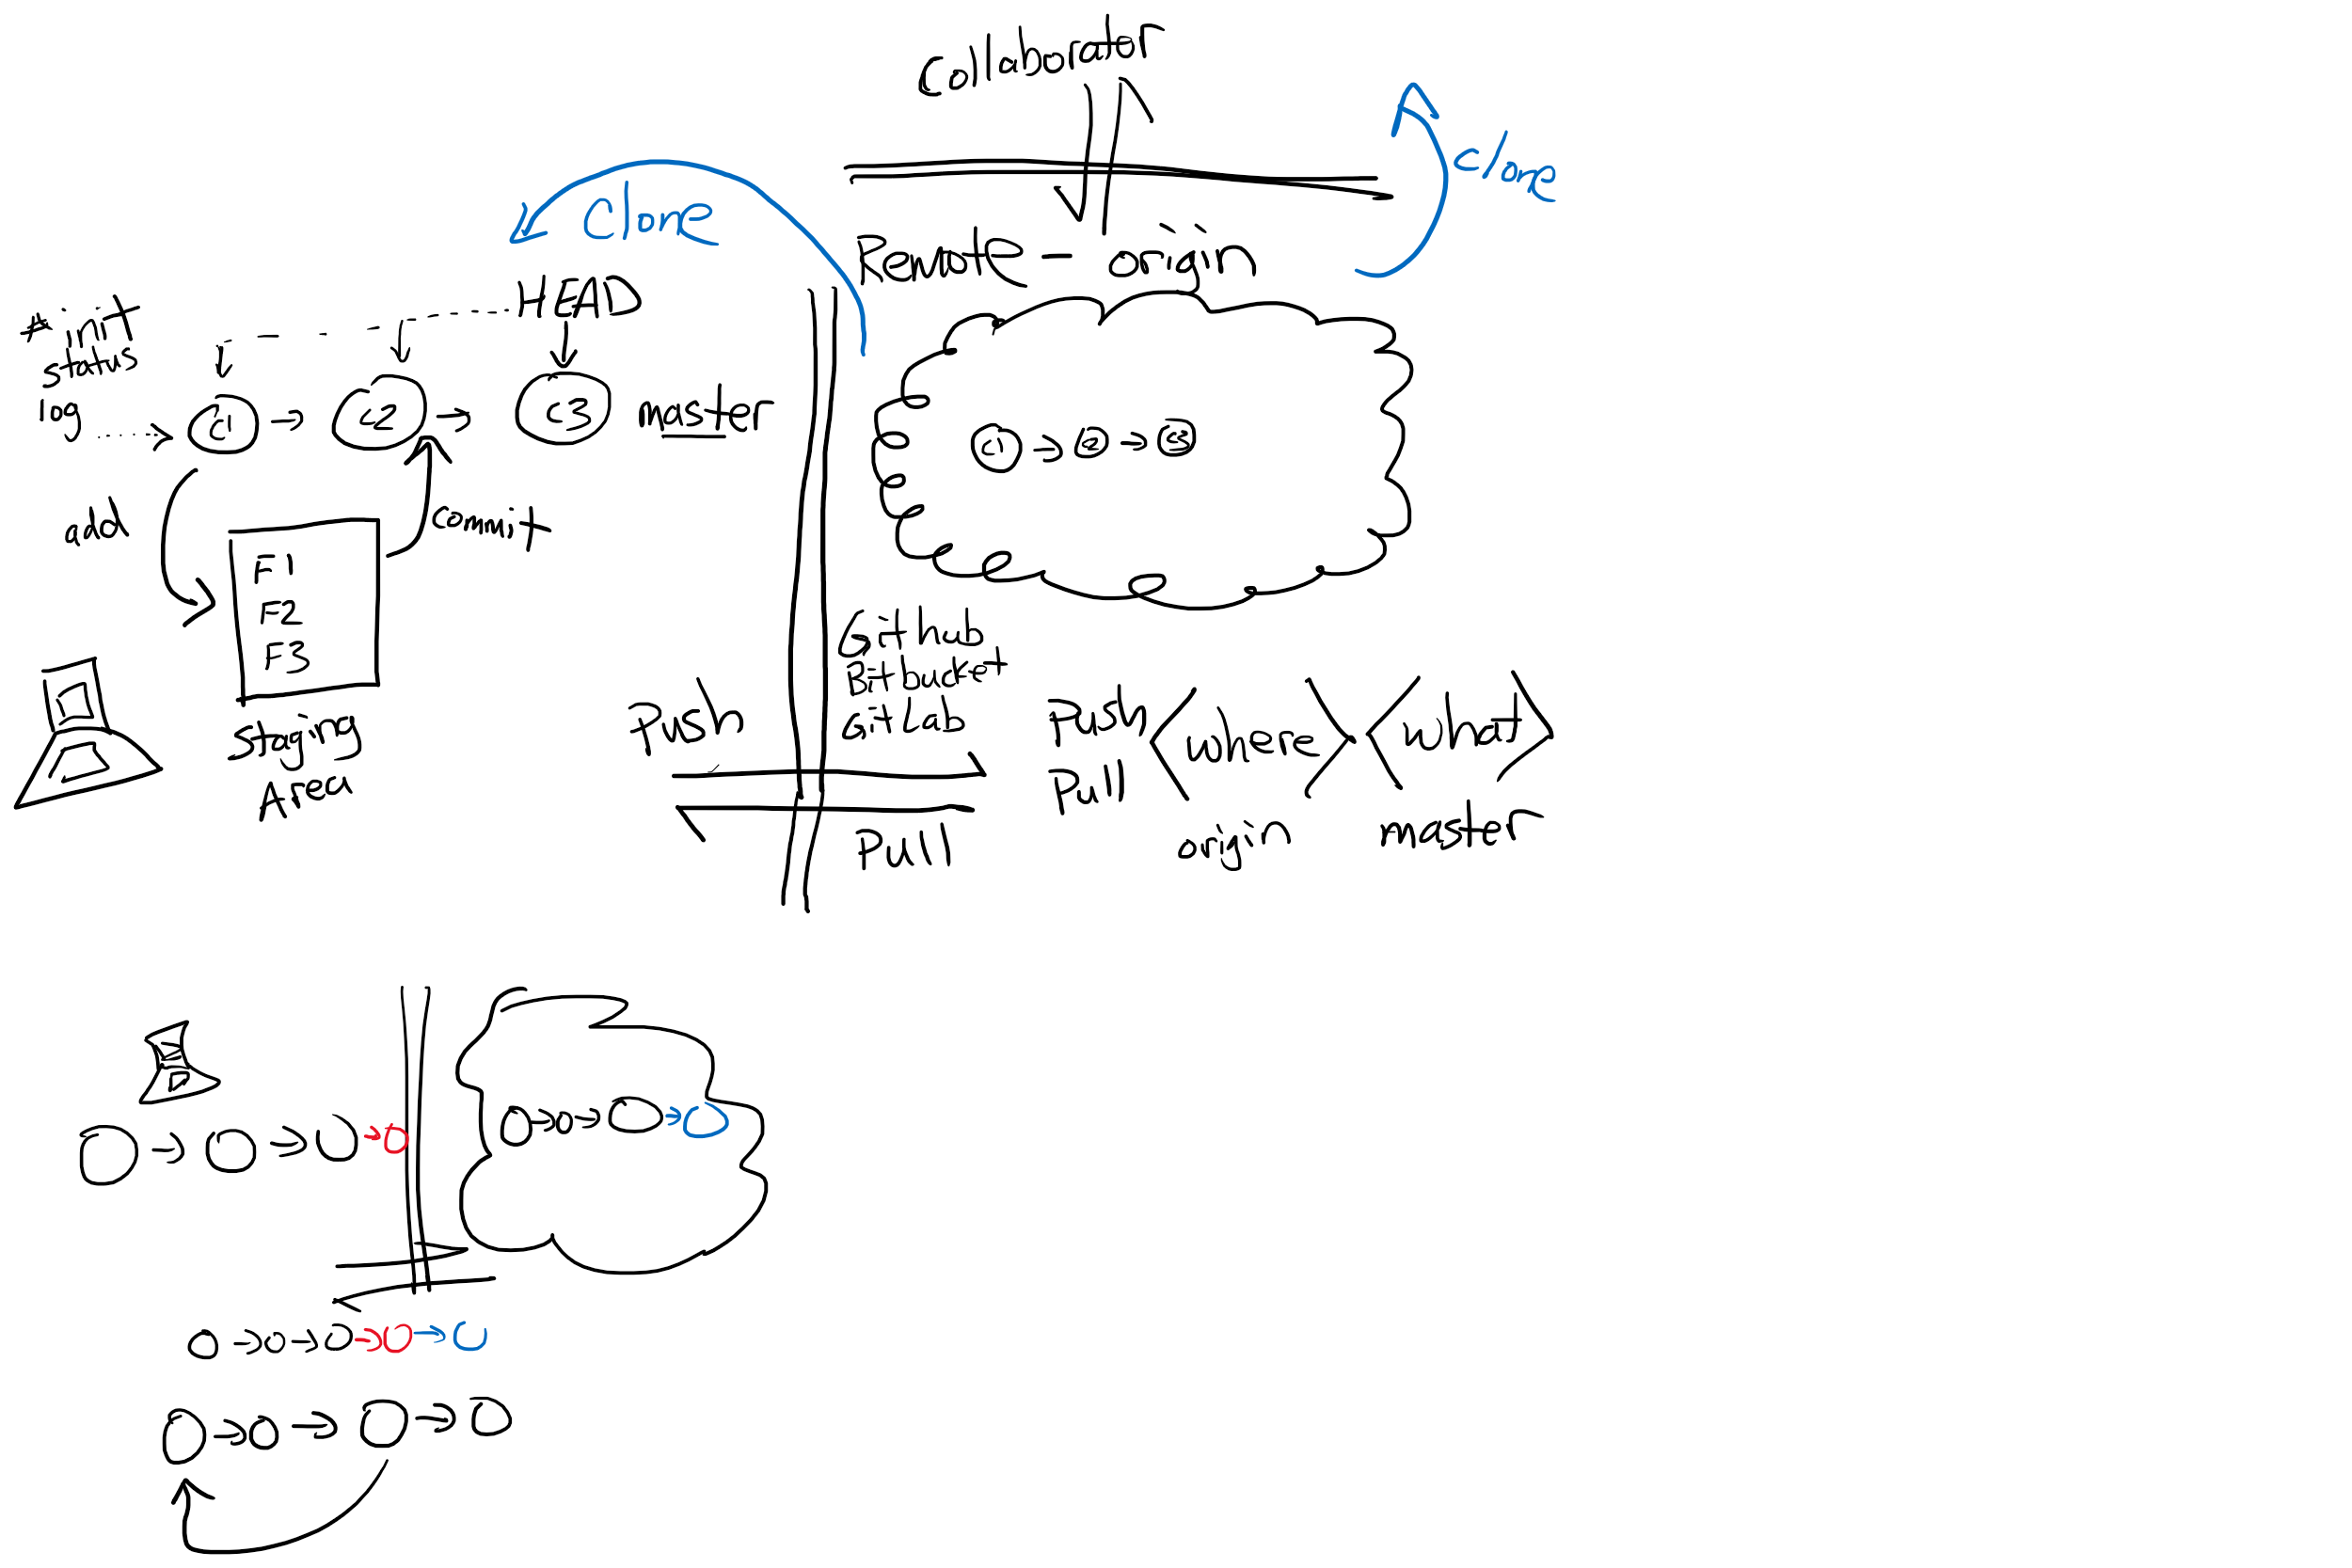 Collaborator
clone
Clone
Remote - origin
HEAD
*init
status
log
C1
C2
C3
master
C1
C2
C3
add
commit
F1
F2
F3
Staging
Area
Github
Bitbucket
Gitlab
Push
Pull
Push <where> <what>
Pull
origin
master